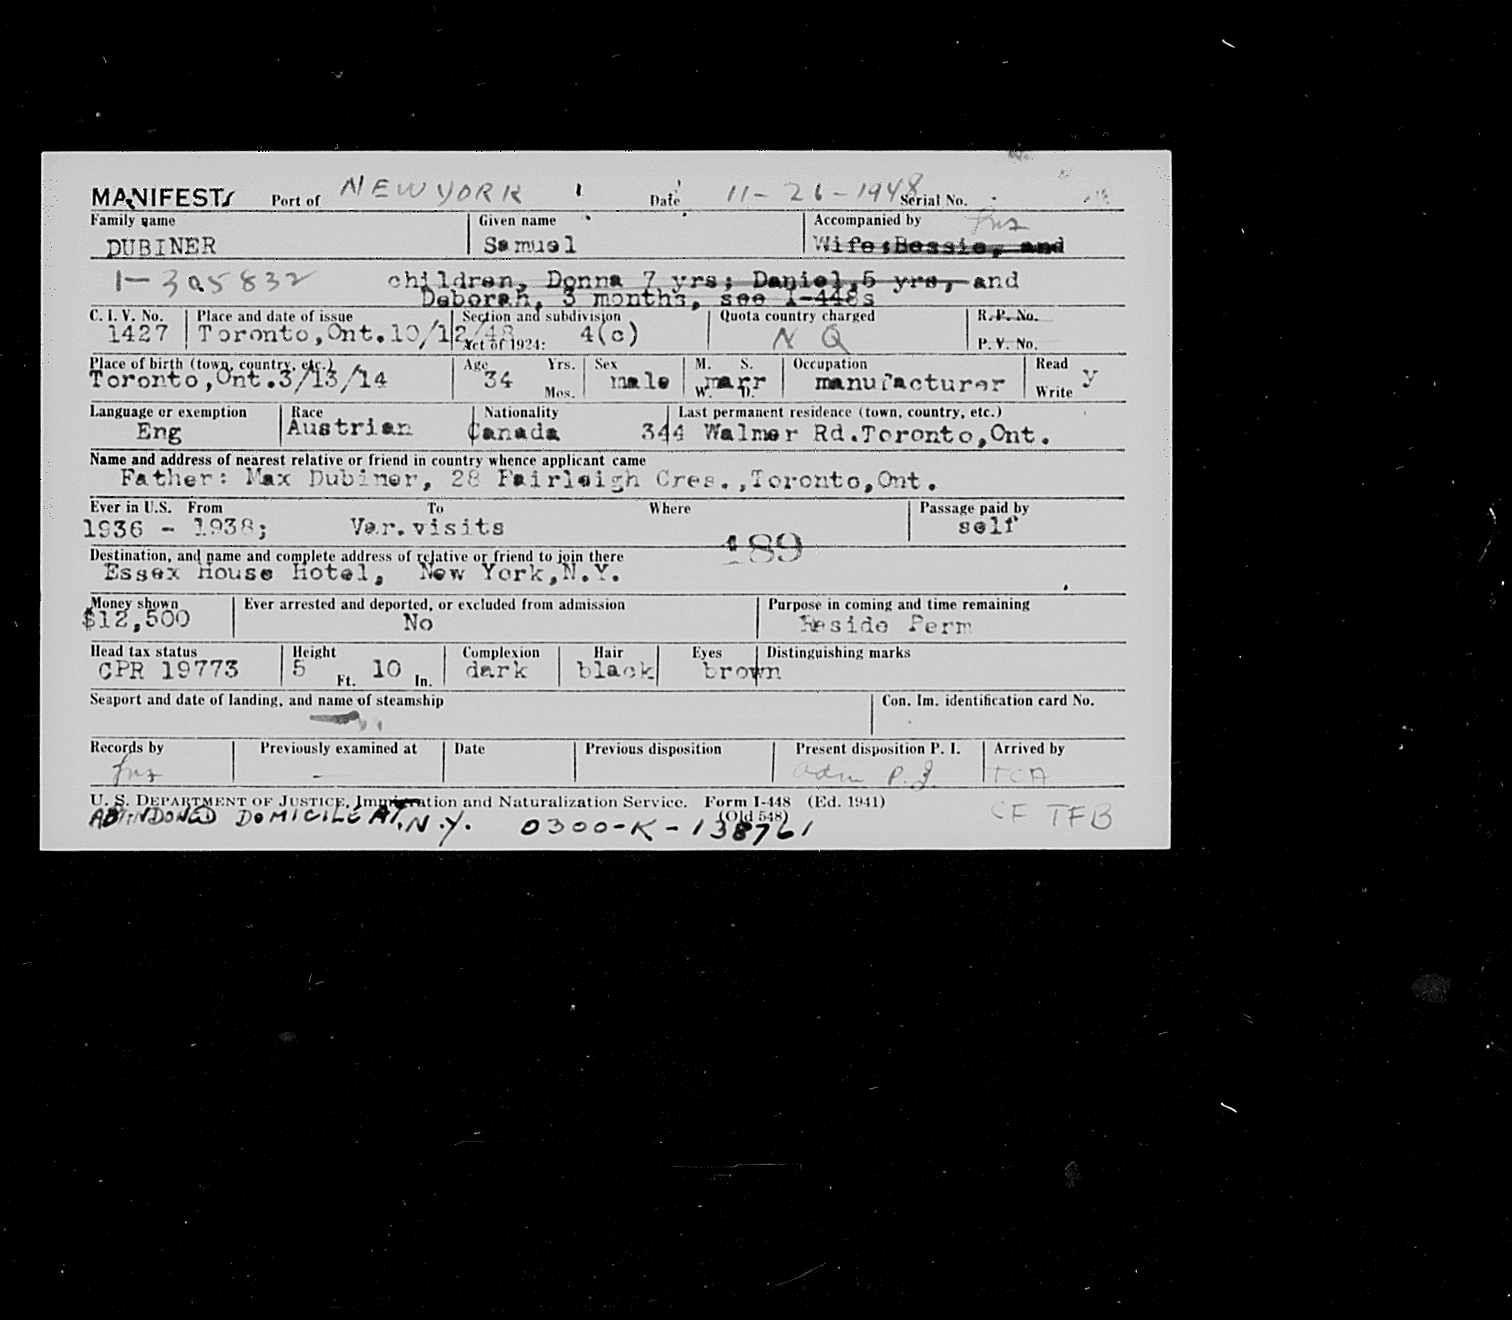 MANIFEST Port of NEW YORK Date 11-26-1948 Serial No.
Family name Given name Accompanied by
DUBINER Samuel Wife:Bessie, and
1-305832 children, Donna 7 yrs; Daniel,5 yrs, and
Deborah, 3 months, see I-448s
C. I. V. No. Place and date of issue Section and subdivision Quota country charged R. P. No.
1427 Toronto,Ont.10/12/48 Act of 1924: 4(c) N Q P. V. No.
Place of birth (town, country, etc.) Age Yrs. Sex M. S. Occupation Read
Toronto,Ont.3/13/14 34 Mos. male marr W. D. manufacturer Write y
Language or exemption Race Nationality Last permanent residence (town, country, etc.)
Eng Austrian Canada 344 Walmer Rd.Toronto,Ont.
Name and address of nearest relative or friend in country whence applicant came
Father: Max Dubiner, 28 Fairleigh Cres.,Toronto,Ont.
Ever in U.S. From To Where Passage paid by
1936 - 1938; Var.visits self
189
Destination, and name and complete address of relative or friend to join there
Essex House Hotel, New York,N.Y.
Money shown Ever arrested and deported, or excluded from admission Purpose in coming and time remaining
$12,500 No Reside Perm
Head tax status Height Complexion Hair Eyes Distinguishing marks
CPR 19773 5 Ft. 10 In. dark black brown
Seaport and date of landing, and name of steamship Con. Im. identification card No.
Records by Previously examined at Date Previous disposition Present disposition P. I. Arrived by
- adm P.I. TCA
U. S. DEPARTMENT OF JUSTICE, Immigration and Naturalization Service. Form I-448 (Ed. 1941)
(Old 548)
ABANDONED DOMICILE AT. N.Y. 0300-K-138761 CF TFB